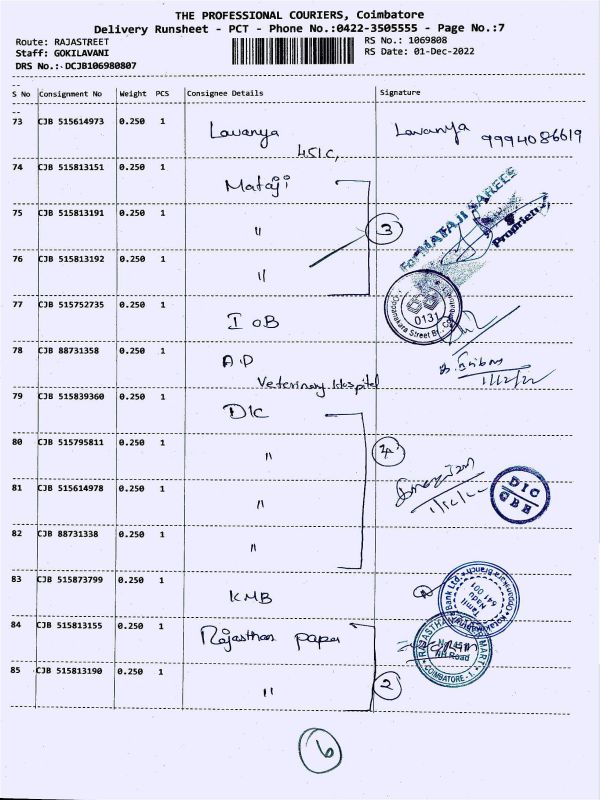 THE PROFESSIONAL COURIERS, Coimbatore
Delivery Runsheet - PCT - Phone No.:0422-3505555 - Page No.:7
Route: RAJASTREET
RS No.: 1069808
Staff: GOKILAVANI
RS Date: 01-Dec-2022
DRS No.: DCJB106980807
S No Consignment No Weight PCS Consignee Details Signature
73 CJB 515614973 0.250 1 Lavanya Lavanya 9994086619
451C,
74 CJB 515813151 0.250 1 Mataji
For MATAJI SAREES
Proprietor
75 CJB 515813191 0.250 1 "
3
76 CJB 515813192 0.250 1 "
Oppanakara Street Br. Coimbatore
0131
77 CJB 515752735 0.250 1 IOB
78 CJB 88731358 0.250 1 AD
Veterinary Hospital
1/12/22
79 CJB 515839360 0.250 1 DIC
80 CJB 515795811 0.250 1 "
4
81 CJB 515614978 0.250 1 "
DIC
CBE
82 CJB 88731338 0.250 1 "
83 CJB 515873799 0.250 1 KMB
Kotak Mahindra Bank Ltd. Oppanakara Branch
Tamil
Nadu
641 001
84 CJB 515813155 0.250 1 Rajasthan paper
RAJASTHAN PAPER MART
NH Road
COIMBATORE - 1.
85 CJB 515813190 0.250 1 "
2
6